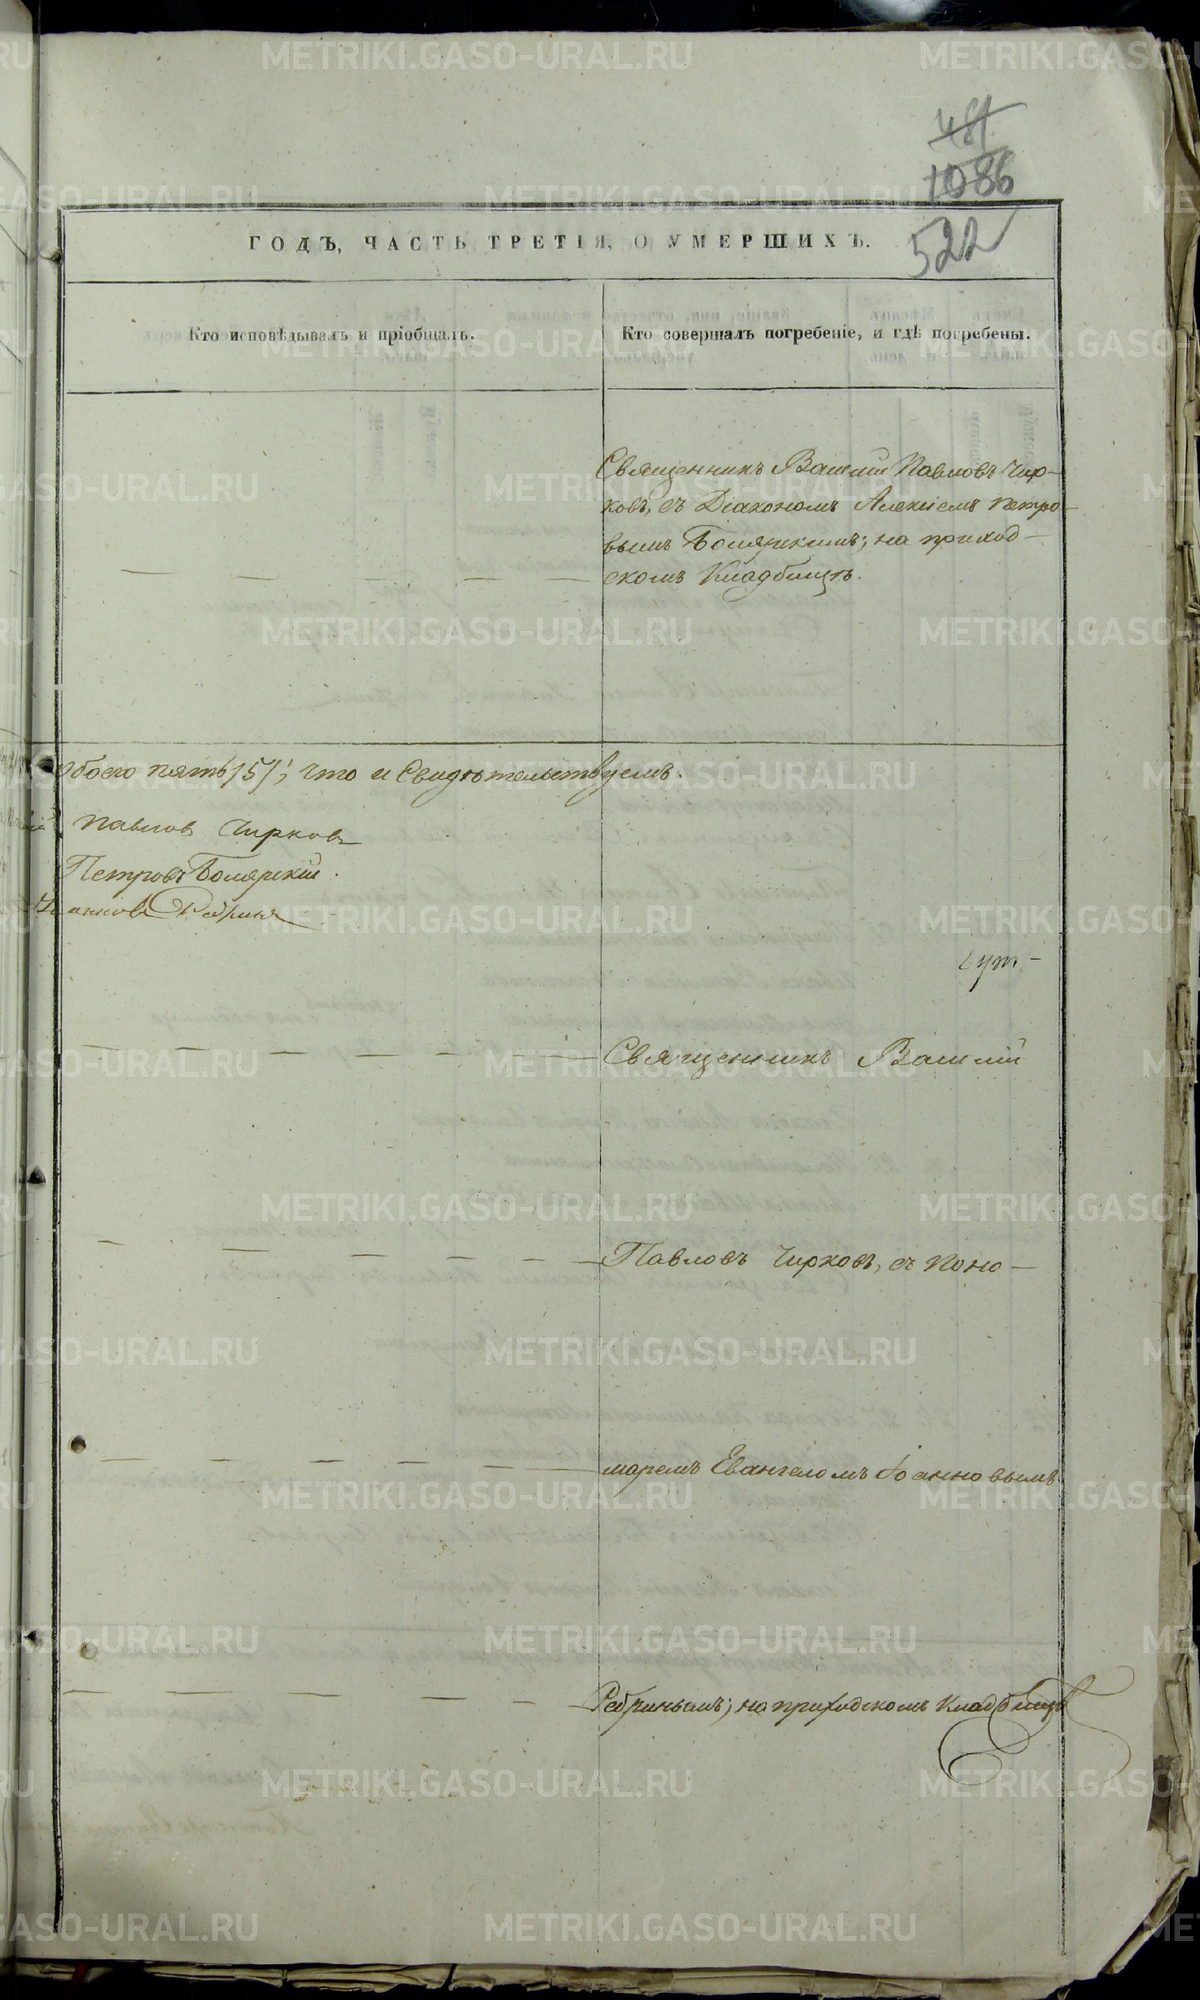 481
1086
522
ГОДЪ, ЧАСТЬ ТРЕТІЯ, О УМЕРШИХЪ.
Кто исповѣдывалъ и пріобщалъ.
Кто совершалъ погребеніе, и гдѣ погребены.
Священникъ Василій Павловъ Чир-
ковъ, съ Діакономъ Алексіемъ Петро-
вымъ Боярскимъ; на приход-
скомъ Кладбищѣ.
Обоего пять /5/; что и Свидѣтельствуемъ.
Павлов Чирков
Петровъ Боярскій.
Священникъ Василій
Павловъ Чирковъ, съ Поно-
маремъ Евангеломъ Іоанновымъ
Ребринымъ; на приходскомъ Кладбищѣ
METRIKI.GASO-URAL.RU